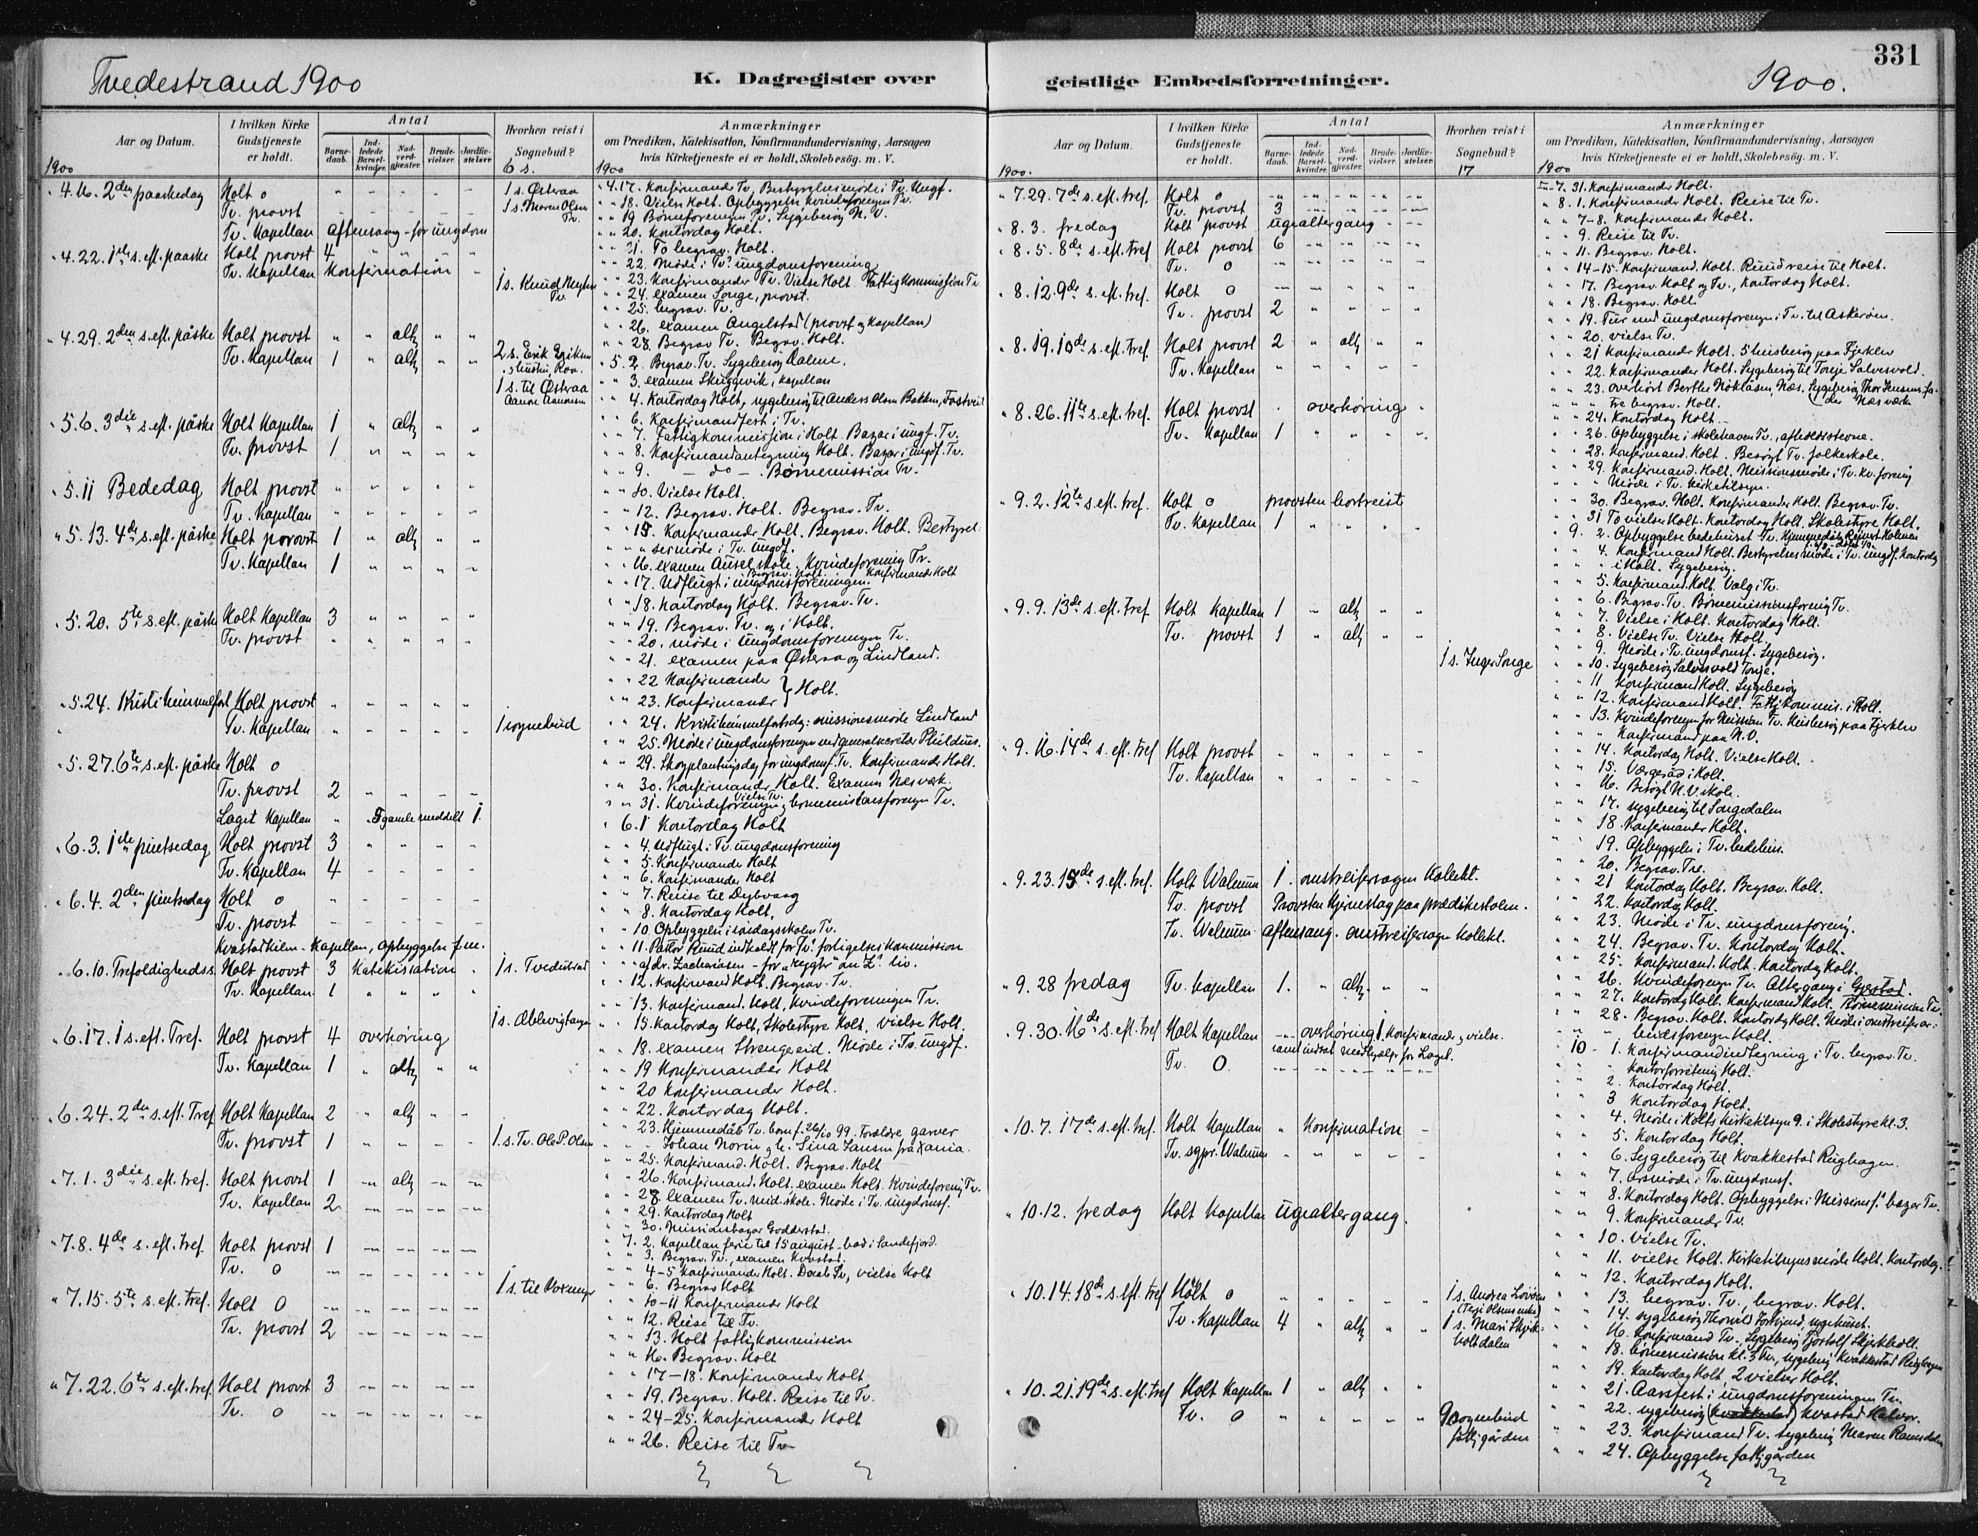 331
Tvedestrand 1900
K. Dagregister over
geistlige Embedsforretninger.
1900.
Aar og Datum.
I hvilken Kirke Gudstjeneste er holdt.
Antal
Barnedaab.
Indledede Barselkvinder.
Nadverdgjester.
Brudevielser.
Jordfæstelser
Hvorhen reist i Sognebud?
Anmærkninger
om Prædiken, Katekisation, Konfirmandundervisning, Aarsagen
hvis Kirketjeneste ei er holdt, Skolebesøg. m. V.
1900
6 s.
1900
" 4.16. 2den paaskedag Holt 0 1 s. Østeraa
Tv. provst 1 s. Maren Olsen Tv.
Tv. Kapellan aftensang - for ungdom
" 4.22. 1ste s. eft. paaske Holt provst 4
Tv. Kapellan Konfirmation
1 s. Knud
" 4.29. 2den s. eft. påske Holt provst " " altg " "
Tv. Kapellan 1 " altg " "
2 s. Erik
1 s. til Østeraa
" 5.6. 3die s. eft. påske Holt Kapellan 1 " altg " "
Tv. provst 1 " " " "
" 5.11 Bededag Holt provst " " " " "
Tv. Kapellan " " " " "
" 5.13. 4de s. eft. påske Holt porovst 1 " altg " "
Tv. Kapellan 1 " " " "
" 5.20. 5te s. eft. påske Holt Kapellan 3 " " " "
Tv. provst " " " " "
" 5.24. Kristi himmelfart Holt provst " " " " "
Tv. Kapellan " " " " " 1 sognebud
" 5.27. 6te s. eft. påske Holt 0
Tv. provst 2 " " " "
Laget Kapellan " " 5 gamle meddelt 1.
" 6.3. 1ste pintsedag Holt provst 3 " " " "
Tv. Kapellan 4 - - - -
" 6.4. 2den pintsedag Holt 0 - - - -
Tv. provst - - - - -
Kvastadkilen - Kapellan, opbyggelse f.m.
" 6.10. Trefoldighedss. Holt provst 3 Katekisation " 1 s. Tvedestrand
Tv. Kapellan. 1 " " " "
1 s. Æblevigtangen
" 6.17. 1 s. eft. Tref. Holt provst 4 overhøring
Tv. Kapellan 1 " altg " "
" 6.24. 2den s. eft. Tref Holt Kapellan 2 " altg " "
Tv. provst 1 " " " " 1. s. Tv. Ole P. Olsen
" 7.1. 3die s. eft. tref. Holt provst 1 -"- altg -"- -"-
Tv. Kapellan 2 -"- -"- -"- -"-
" 7.8. 4de s. eft. tref. Holt provst 1 -"- -"- -"- -"-
Tv. 0 -"- -"- -"- -"- -"-
1 s. til
" 7.15. 5te s. eft. tref. Holt 0 -"- -"- -"- -"- -"-
Tv. provst 2 -"- -"- -"- -"-
" 7.22. 6te s. eft. tref. Holt provst 3 -"- -"- -"- -"-
Tv. 0 -"- -"- -"- -"- -"-
" 4.17. Konfirmander Tv. Bestyrelsesmøde i Tv. Ungf.
" " 18. Vielse Holt. Opbyggelse kvindeforeningen Tv.
" " 19 Børneforeningen Tv. Sygebesøg N. V.
" " 20. Kontordag Holt.
" " 21. To begrav. Holt.
" " 22. Møde i Tv. ungdomsforening
" " 23. Konfirmander Tv. Vielse Holt Fattigkommission Tv
" " 24. examen Songe, provst.
" " 25. begrav. Tv.
" " 26. examen Angelstad (provst og Kapellan)
" " 28. Begrav Tv. Begrav. Holt.
" 5.2. Begrav. Tv. Sygebesøg Dalene.
" " 3. examen Skuggevik, kapellan
" " 4. Kontordag Holt, sygebesøg til Anders Olsen Bakken, Fosstveit
" " 6. Konfirmandfest i Tv.
" " 7. Fattigkommission i Holt. Bazar i ungf. Tv.
" " 8. Konfirmandantegning Holt. Bazar i ungdf. Tv.
" " 9. - do - . Børnemission Tv.
" " 10. Vielse Holt.
" " 12. Begrav. Holt. Begrav. Tv.
" " 15. Konfirmander Holt. Begrav. Holt. Bestyrel-
" " " sesmøde i Tv. Ungdf.
" " 16. examen Ausel skole. Kvindeforening Tv.
" " 17. Udflugt i ungdomsforeningen. Begrav. Holt. Konfirmander Holt
" " 18. Kontordag Holt. Begrav. Tv.
" " 19. Begrav. Tv. og i Holt.
" " 20. møde i ungdomsforeningen Tv.
" " 21. examen paa Østeraa og Lindland.
" " 22 Konfirmander } Holt.
" " 23. Konfirmander
" " 24. Kristi himmelfartsdg: missionsmøde Lindland
" " 25. Møde i ungdomsforeningen ved generalsecretær
" " 29. Skogplantningsdag for ungdomsf. Tv. Konfirmander Holt.
" " 30. Konfirmander Holt. Examen Næsværk.
" " 31. Kvindeforeningen, børnemissionsforeningen Tv. Vielse Tv.
" 6.1 Kontordag Holt
" " 4. Udflugt i Tv. ungdomsforening
" " 5. Konfirmander Holt
" " 6. Konfirmander Holt
" " 7. Reise til Dybvaag
" " 8. Kontordag Holt.
" " 10 Opbyggelse i søndagsskolen Tv.
" " 11. Pastor Ruud indkaldt for Tv.s forligelseskommission
" " " af dr. Zachariasen - for "rygter" om Z.s liv.
" " 12. Konfirmand Holt. Begrav. Tv.
" " 13. Konfirmand. Holt, Kvindeforeningen Tv.
" " 15. Kontordag Holt, Skolestyre Holt, vielse Holt.
" " 18. examen Strengereid. Møde i Tv. ungdf.
" " 19 Konfirmander Holt
" " 20 Konfirmander Holt.
" " 22. Kontordag Holt.
" " 23. Hjemmedåb Tv. barn f. 26/10 99. Forældre garver
Johan Norin og h. Sina Jansen fra Xania.
" " 25. Konfirmand. Holt. Begrav. Holt
" " 26. Konfirmand. Holt. examen Holt. Kvindeforening Tv.
" " 28. examen Tv. mid. skole. Møde i Tv. ungdomsf.
" " 29. Kontordag Holt
" " 30. Missionsbazar Goderstad.
" 7. 2. Kapellan ferie til 15 august - bad i Sandefjord.
" " 3. Begrav. Tv., examen Kvastad.
" " 4-5 Konfirmander Holt. Daab Tv, vielse Holt
" " 6. Begrav Holt
" " 10-11 Konfirmander Holt
" " 12. Reise til Tv.
" " 13. Holt fattigkommission
" " 16. Begrav. Holt
" " 17-18. Konfirmander Holt
" " 19. Begrav. Holt. Reise til Tv.
" " 24-25. Konfirmander Holt
" " 26. Reise til Tv
Aar og Datum.
I hvilken Kirke Gudstjeneste er holdt.
Antal
Barnedaab.
Indledede Barselkvinder.
Nadverdgjester.
Brudevielser.
Jordfæstelser.
Hvorhen reist i Sognebud?
Anmærkninger
om Prædiken, Katekisation, Konfirmandundervisning, Aarsagen
hvis Kirketjeneste ei er holdt, Skolebesøg. m. V.
1900.
17
1900
" 7.29. 7de s. eft. tref Holt 0
Tv. provst 3
" 8.3. fredag Holt provst ugialtergang
" 8.5. 8de s. eft. tref Holt provst 6
Tv. 0
" 8.12. 9de s. eft. tref. Holt 0
Tv. provst 2
" 8.19. 10de s. eft. tref. Holt provst 2 " altg " "
Tv. Kapellan " " " " "
" 8.26. 11te s. eft. tref. Holt provst . overhøring "
Tv. Kapellan 1 " " " "
" 9.2. 12te s. eft. tref. Holt 0 provsten bortreist
Tv. Kapellan 1 " " " "
" 9.9. 13de s. eft. tref Holt Kapellan 1 " altg " "
Tv. provst 1 " altg " "
1 s. Inger Songe
" 9.16. 14de s. eft. tref Holt provst " " " " "
Tv. Kapellan " " " " "
" 9.23. 15de s. eft. tref. Holt Walnum 1. omstreifersagen Kollekt.
Tv. provst Provsten hjerneslag paa prædikestolen.
Tv. Walnum aftensang. omstreifersagen Kollekt.
" 9.28 fredag Tv. Kapellan 1. " altg. " "
" 9.30. 16de s. eft. tref Holt Kapellan -- overhøring 1 Konfirmand, vielse.
samt indsat medhjelper for Laget.
Tv. 0.
" 10.7. 17de s. eft. tref. Holt Kapellan " Konfirmation -
Tv. sgpr. Walnum " " " " "
" 10.12. fredag Holt Kapellan ugialtergang.
" 10.14. 18de s. eft. tref Holt 0 " " " " " 1 s. Andrea
Tv. Kapellan 4 " altg " " 1 s. Mari
" 10.21. 19de s. eft. tref Holt Kapellan 1 " altg " "
Tv. 0 " " " " " 9 sognebud
fattiggården
" 7. 31. Konfirmander Holt.
" 8. 1. Konfirmander Holt. Reise til Tv.
" " 7-8. Konfirmander Holt.
" " 9. Reise til Tv.
" " 11. Begrav. Holt.
" " 14-15. Konfirmand. Holt. Ruud reise til Holt.
" " 17. Begrav Holt og Tv., Kontordag Holt.
" " 18. Begrav. Holt
" " 19. Tur med ungdomsforeningen i Tv. til Askerøen.
" " 20. vielse Tv.
" " 21 Konfirmander Holt. 5 husbesøg paa Fjerklev
" " 22. Konfirmander Holt. Sygebesøg til Torje Salvesvold.
" " 23. overhørt Berthe Noklasen, Næs. Sygebesøg
" " " tre begrav. Holt.
" " 24. Kontordag Holt.
" " 26. Opbyggelse i skolehaven Tv., afholdsstevne.
" " 28. Konfirmand. Holt. Besøgt Tv. folkeskole.
" " 29. Konfirmand. Holt. Missionsmøde i Tv. kv. forening
" " Møde i Tv. kirketilsyn.
" " 30. Begrav. Holt. Konfirmander Holt. Begrav. Tv.
" " 31 To vielser Holt. Kontordag Holt. Skolestyre Holt.
9. 2. Opbyggelse bedehuset Tv.
" " 4. Konfirmand Holt. Bestyrelsesmøde i Tv. ungdf. Kontordag
" " i Holt. Sygebesøg.
" " 5. Konfirmand. Holt. Valg i Tv.
" " 6. Begrav. Tv. Børnemissionsforening Tv.
" " 7. Vielse i Holt. Kontordag Holt.
" " 8. Vielse Tv. Vielse Holt.
" " 9. Møde i Tv. ungdomsf. Sygebesøg.
" " 10. Sygebesøg Salvesvold Torje.
" " 11 Konfirmand Holt. Sygebesøg
" " 12. Konfirmand Holt. Fattigkommis. i Holt.
" " 13. Kvindeforeningen for Mission Tv. Husbesøg paa Fjerklev
" " Konfirmand paa N.V.
" " 14. Kontordag Holt. Vielse Holt.
" " 15. Vergeråd i Holt.
" " 16. Besøgt N.V. skole.
" " 17. sygebesøg til Songedalen
" " 18. Konfirmander Holt.
" " 19. Opbyggelse i Tv. bedehus.
" " 20. Begrav. Tv.
" " 21 Kontordag Holt. Begrav. Holt.
" " 22. Kontordag Holt.
" " 23. Møde i Tv. ungdomsforening.
" " 24. Begrav. Tv. Kontordag Holt.
" " 25. Konfirmand. Holt. Kontordag Holt.
" " 26. Kvindeforeningen Tv. Altergang i
" " 27. Kontordag Holt. Konfirmand Holt. Børnemission Tv.
" " 28. Begrav. Holt. Kontordag Holt. Møde i omstreiferar-
" " beidsforeningen Holt.
10 - 1. Konfirmandindtegning i Tv. begrav. Tv.
" " Kontorforretning Holt.
" " 2. Kontordag Holt.
" " 3 Kontordag Holt.
" " 4. Møde i Holts kirketilsyn 9. i Skolestyre kl. 3.
" " 5. Kontordag Holt.
" " 6. Sygebesøg til Kvakkestad Rughagen.
" " 7. Årsmøde i Tv. ungdomsf.
" " 8. Kontordag Holt. Opbyggelse i Missionsf.s bazar Tv.
" " 9. Konfirmander Tv.
" " 10. Vielse Tv.
" " 11. vielse Holt. Kirketilsynsmøde Holt. Kontordag.
" " 12. Kontordag Holt.
" " 13. begrav. Tv., begrav. Holt.
" " 14. sygebesøg
" " 16. Konfirmand Tv. Sygebesøg
" " 18. børnemission kl. 3 Tv., sygebesøg Kvakkestad Rughagen
" " 19. Kontordag Holt. 2 vielser Holt.
" " 21. Aarsfest i ungdomsforeningen Tv.
" " 22. sygebesøg (Kvakkestad) Kvastad Halvor.
" " 23. Konfirmand Tv. Sygebesøg Maren
" " 24. Opbyggelse fattiggården